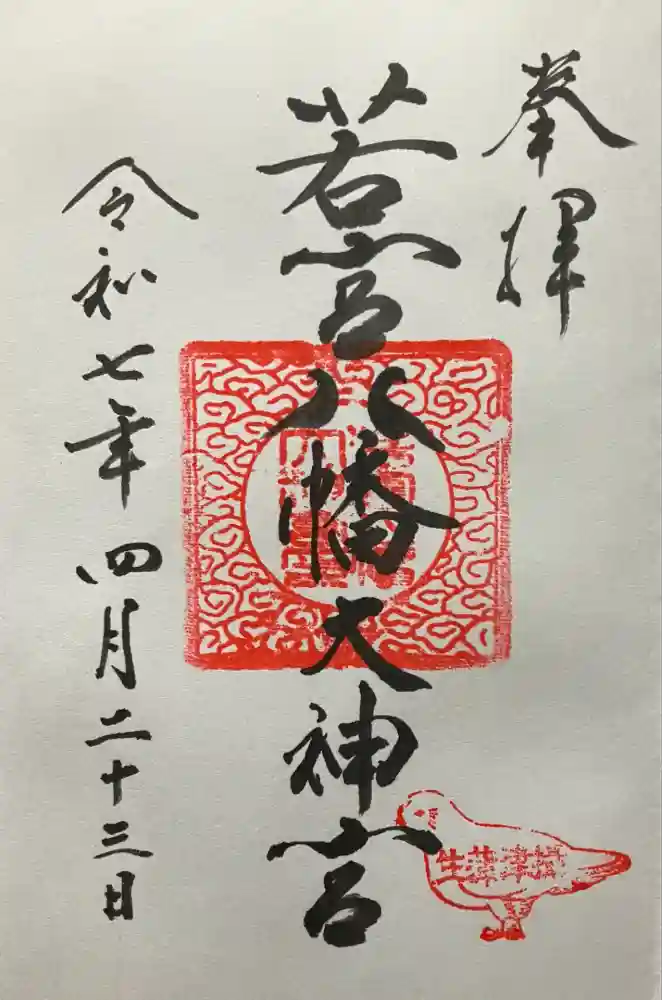 奉拝
若宮八幡大神宮
摂津蒲生
令和七年四月二十三日